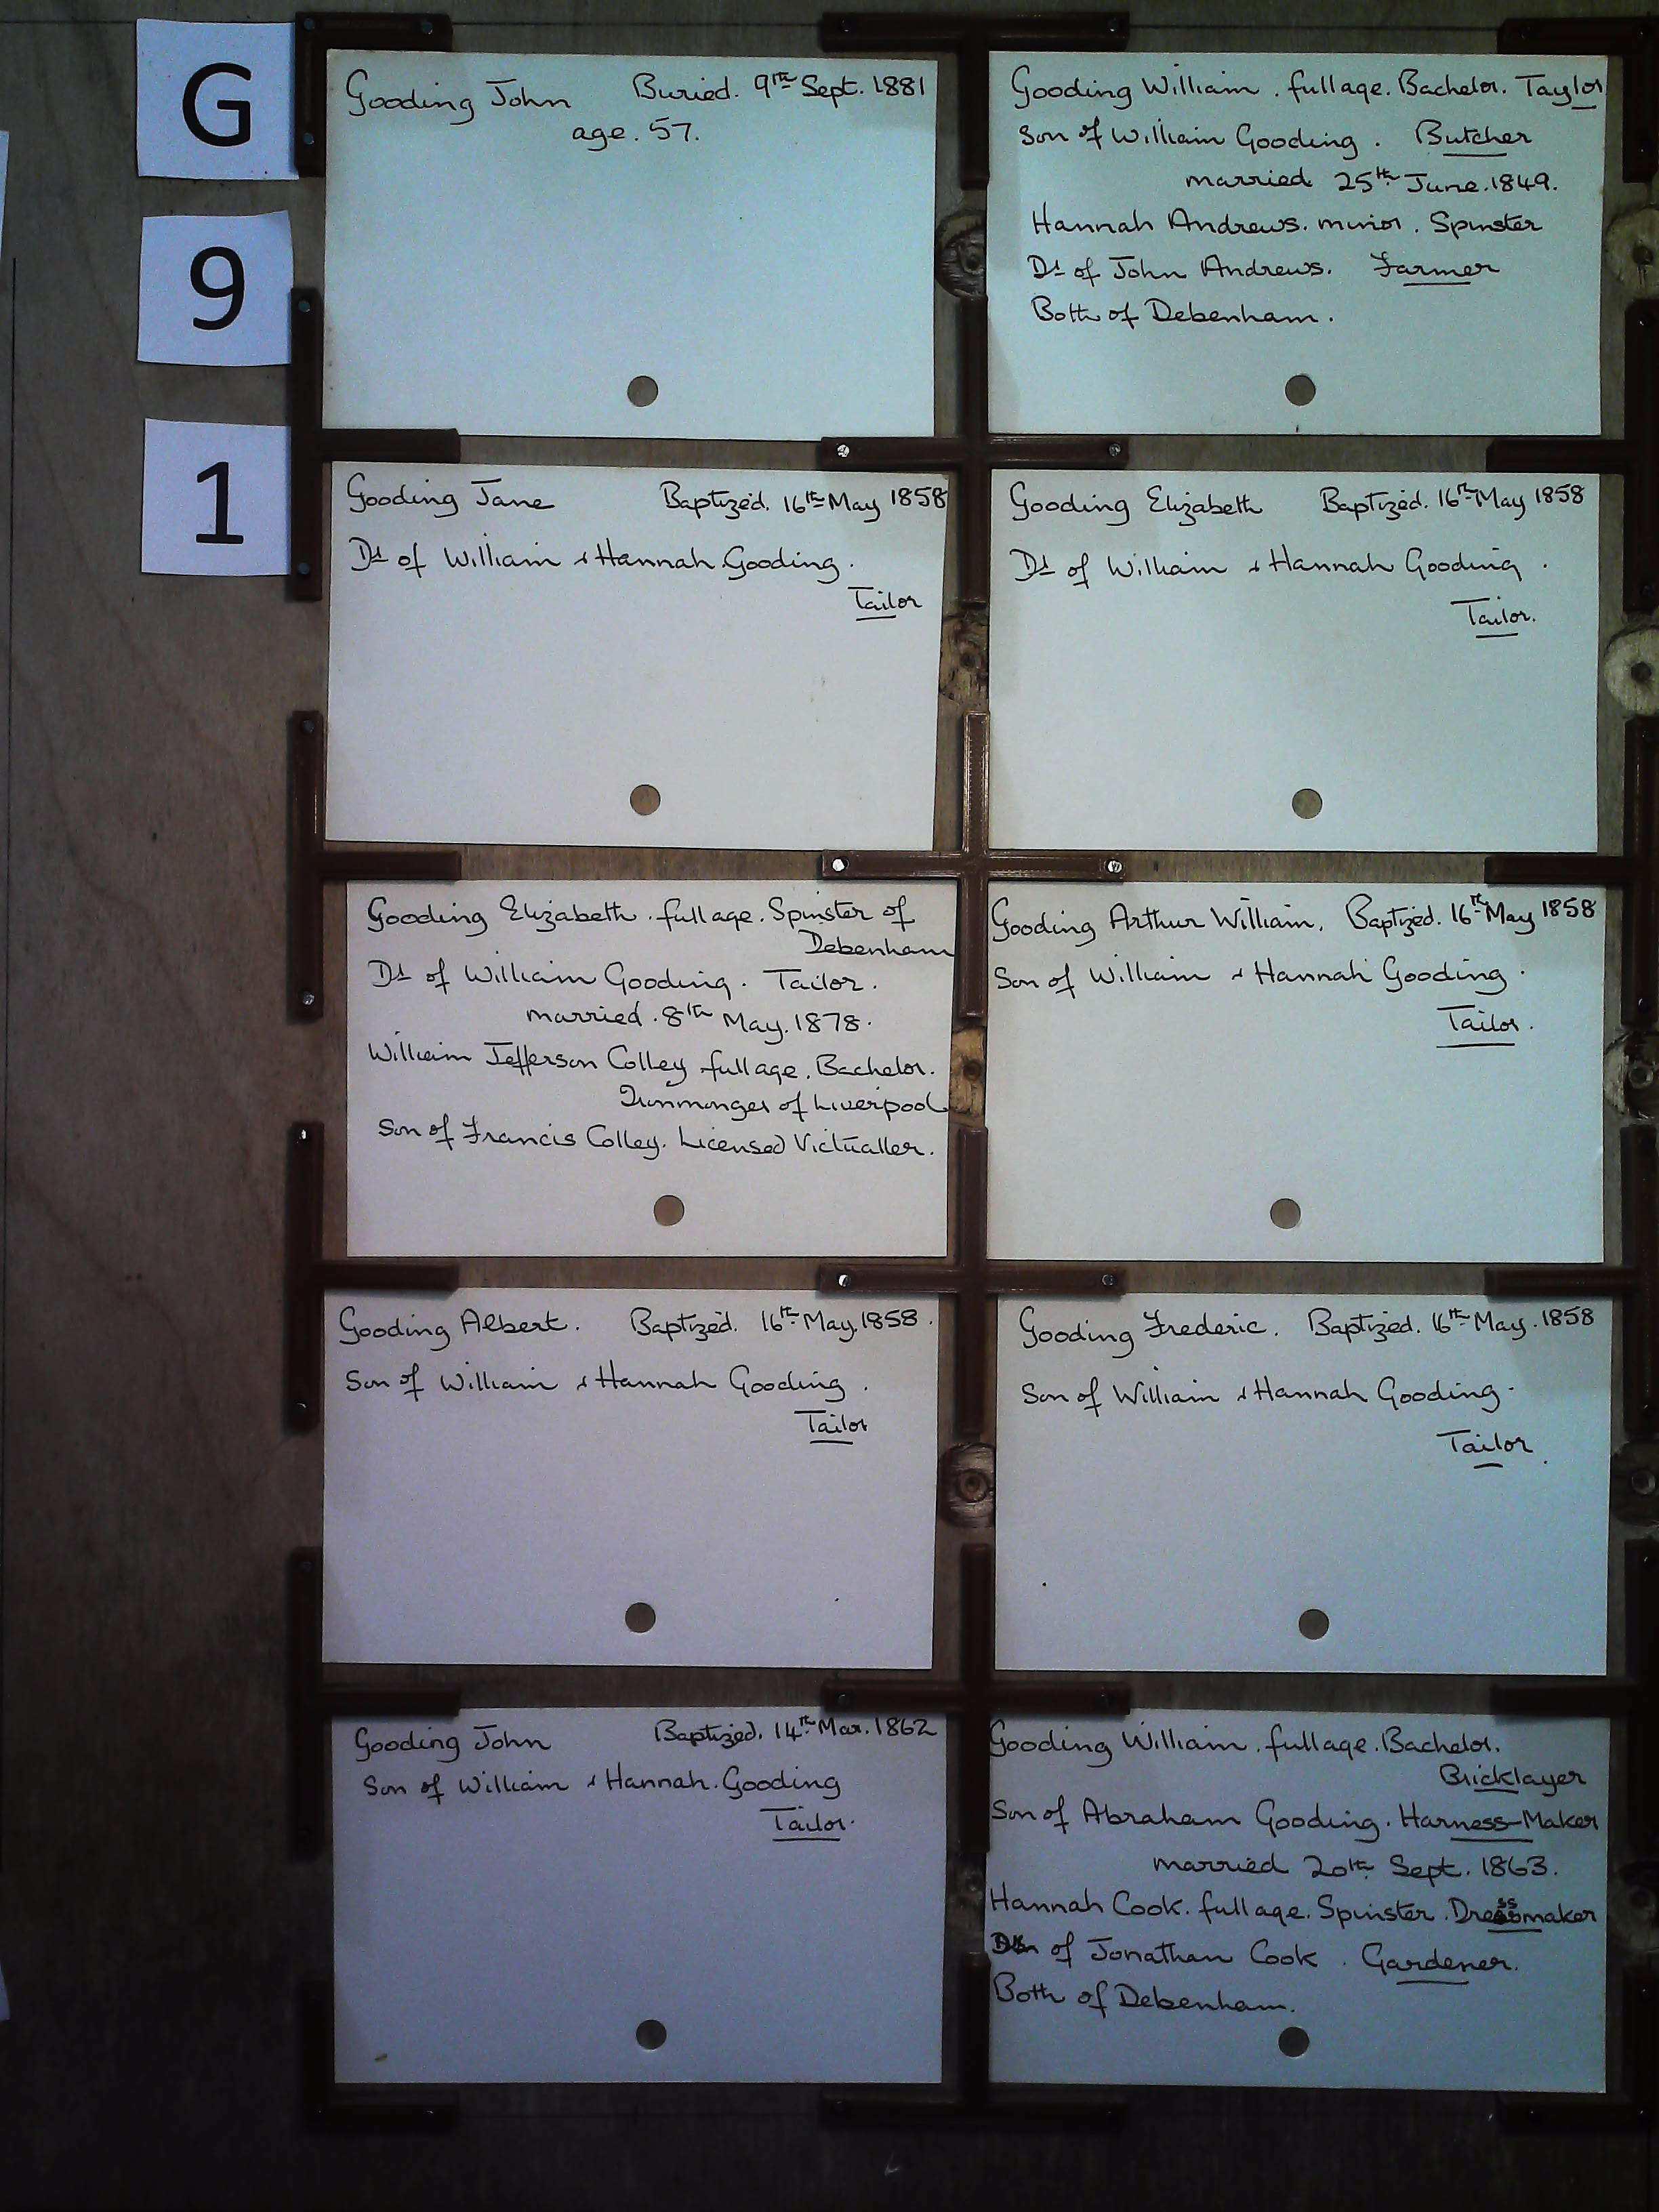 G
9
1
Gooding John Buried. 9th Sept. 1881
age. 57.
Gooding William . full age. Bachelor. Taylor
Son of William Gooding . Butcher
married 25th June. 1849.
Hannah Andrews. minor . Spinster
Dt of John Andrews. Farmer
Both of Debenham .
Gooding Jane Baptized. 16th May 1858
Dt of William & Hannah Gooding .
Tailor
Gooding Elizabeth Baptized. 16th May 1858
Dt of William & Hannah Gooding .
Tailor.
Gooding Elizabeth . full age . Spinster of
Debenham
Dt of William Gooding . Tailor .
married . 8th May. 1878 .
William Jefferson Colley full age . Bachelor .
Ironmonger of Liverpool
Son of Francis Colley. Licensed Victualler .
Gooding Arthur William. Baptized. 16th May 1858
Son of William & Hannah Gooding .
Tailor .
Gooding Albert . Baptized. 16th May. 1858 .
Son of William & Hannah Gooding .
Tailor
Gooding Frederic . Baptized. 16th May . 1858
Son of William & Hannah Gooding .
Tailor .
Gooding John Baptized. 14th Mar. 1862
Son of William & Hannah . Gooding
Tailor .
Gooding William . full age . Bachelor.
Bricklayer
Son of Abraham Gooding . Harness-Maker
married 20th Sept. 1863.
Hannah Cook. full age. Spinster . Dressmaker
of Jonathan Cook . Gardener.
Both of Debenham.